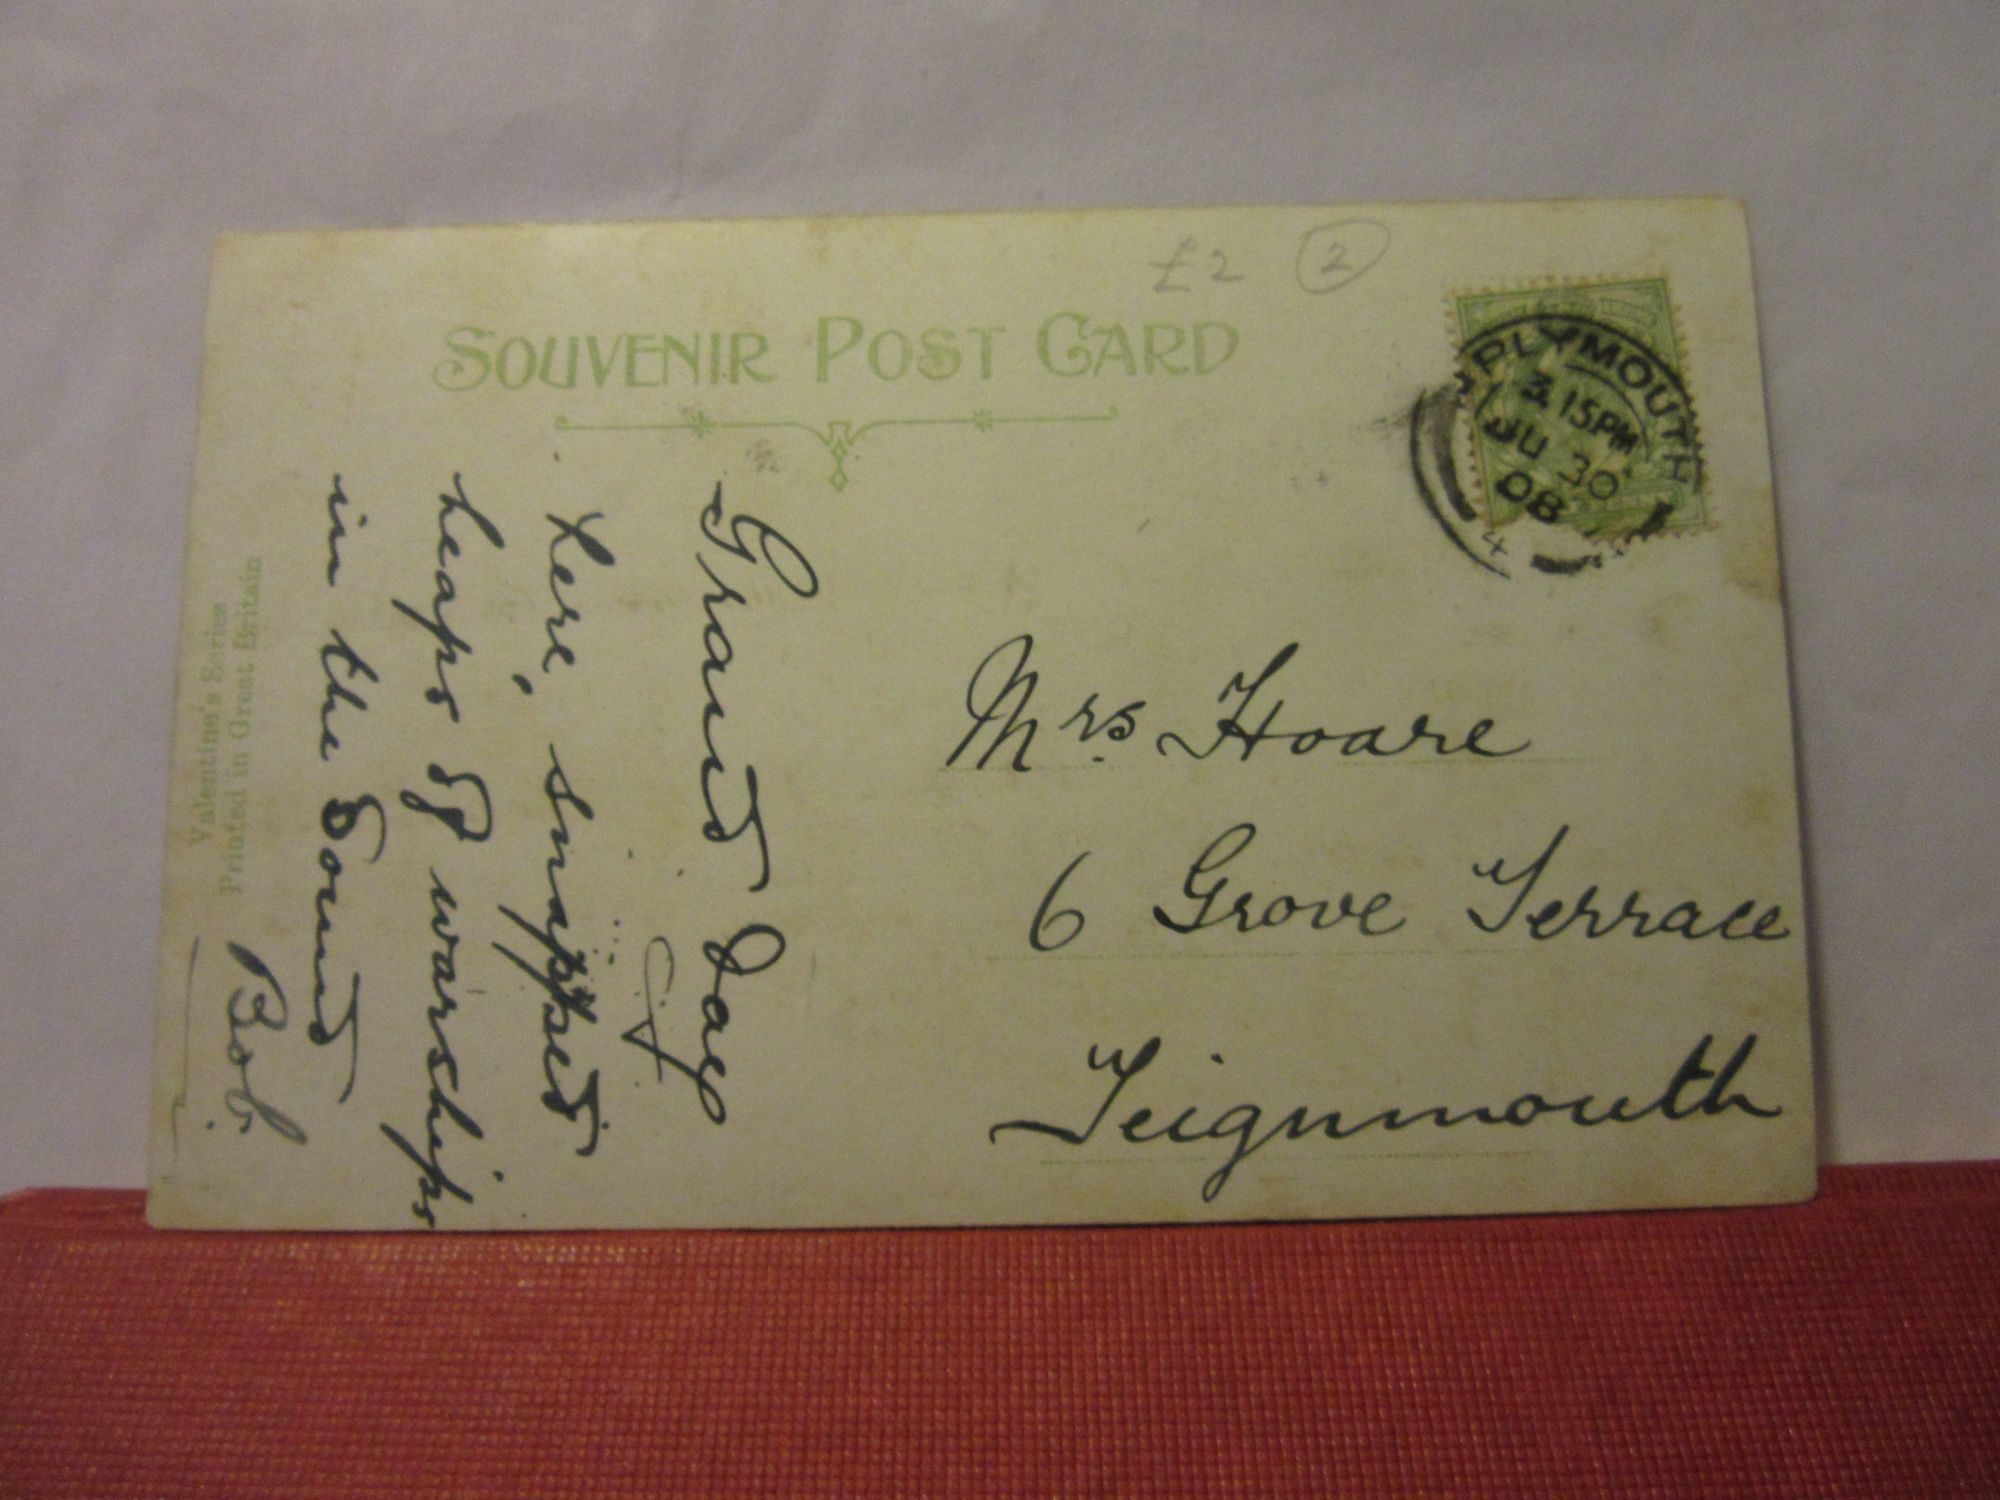 £2 2
SOUVENIR POST CARD
PLYMOUTH
3.15PM
JU 30
08
4
Grand day
here, snapped
heaps of warships
in the Sound
Bob.
Mrs. Hoare
6 Grove Terrace
Teignmouth
Valentine's Series
Printed in Great Britain